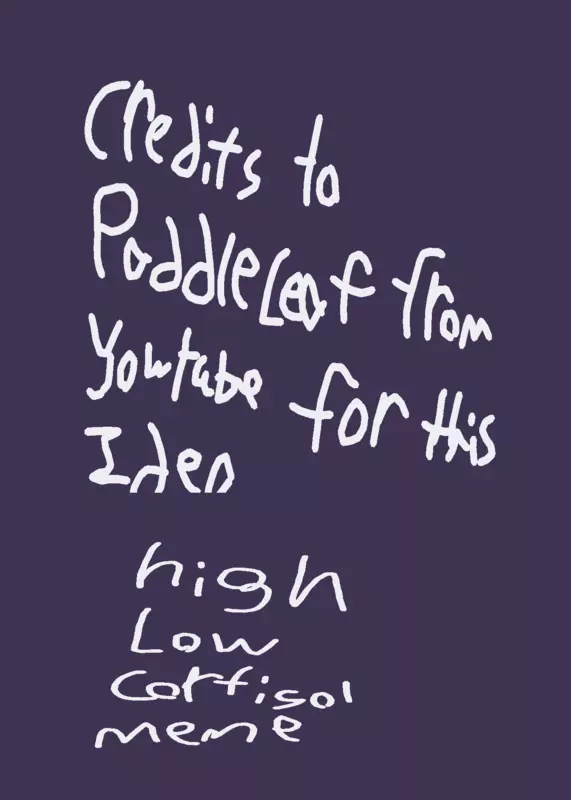 Credits to
PaddleLeaf from
Youtube for this
Idea
high
Low
Cortisol
meme